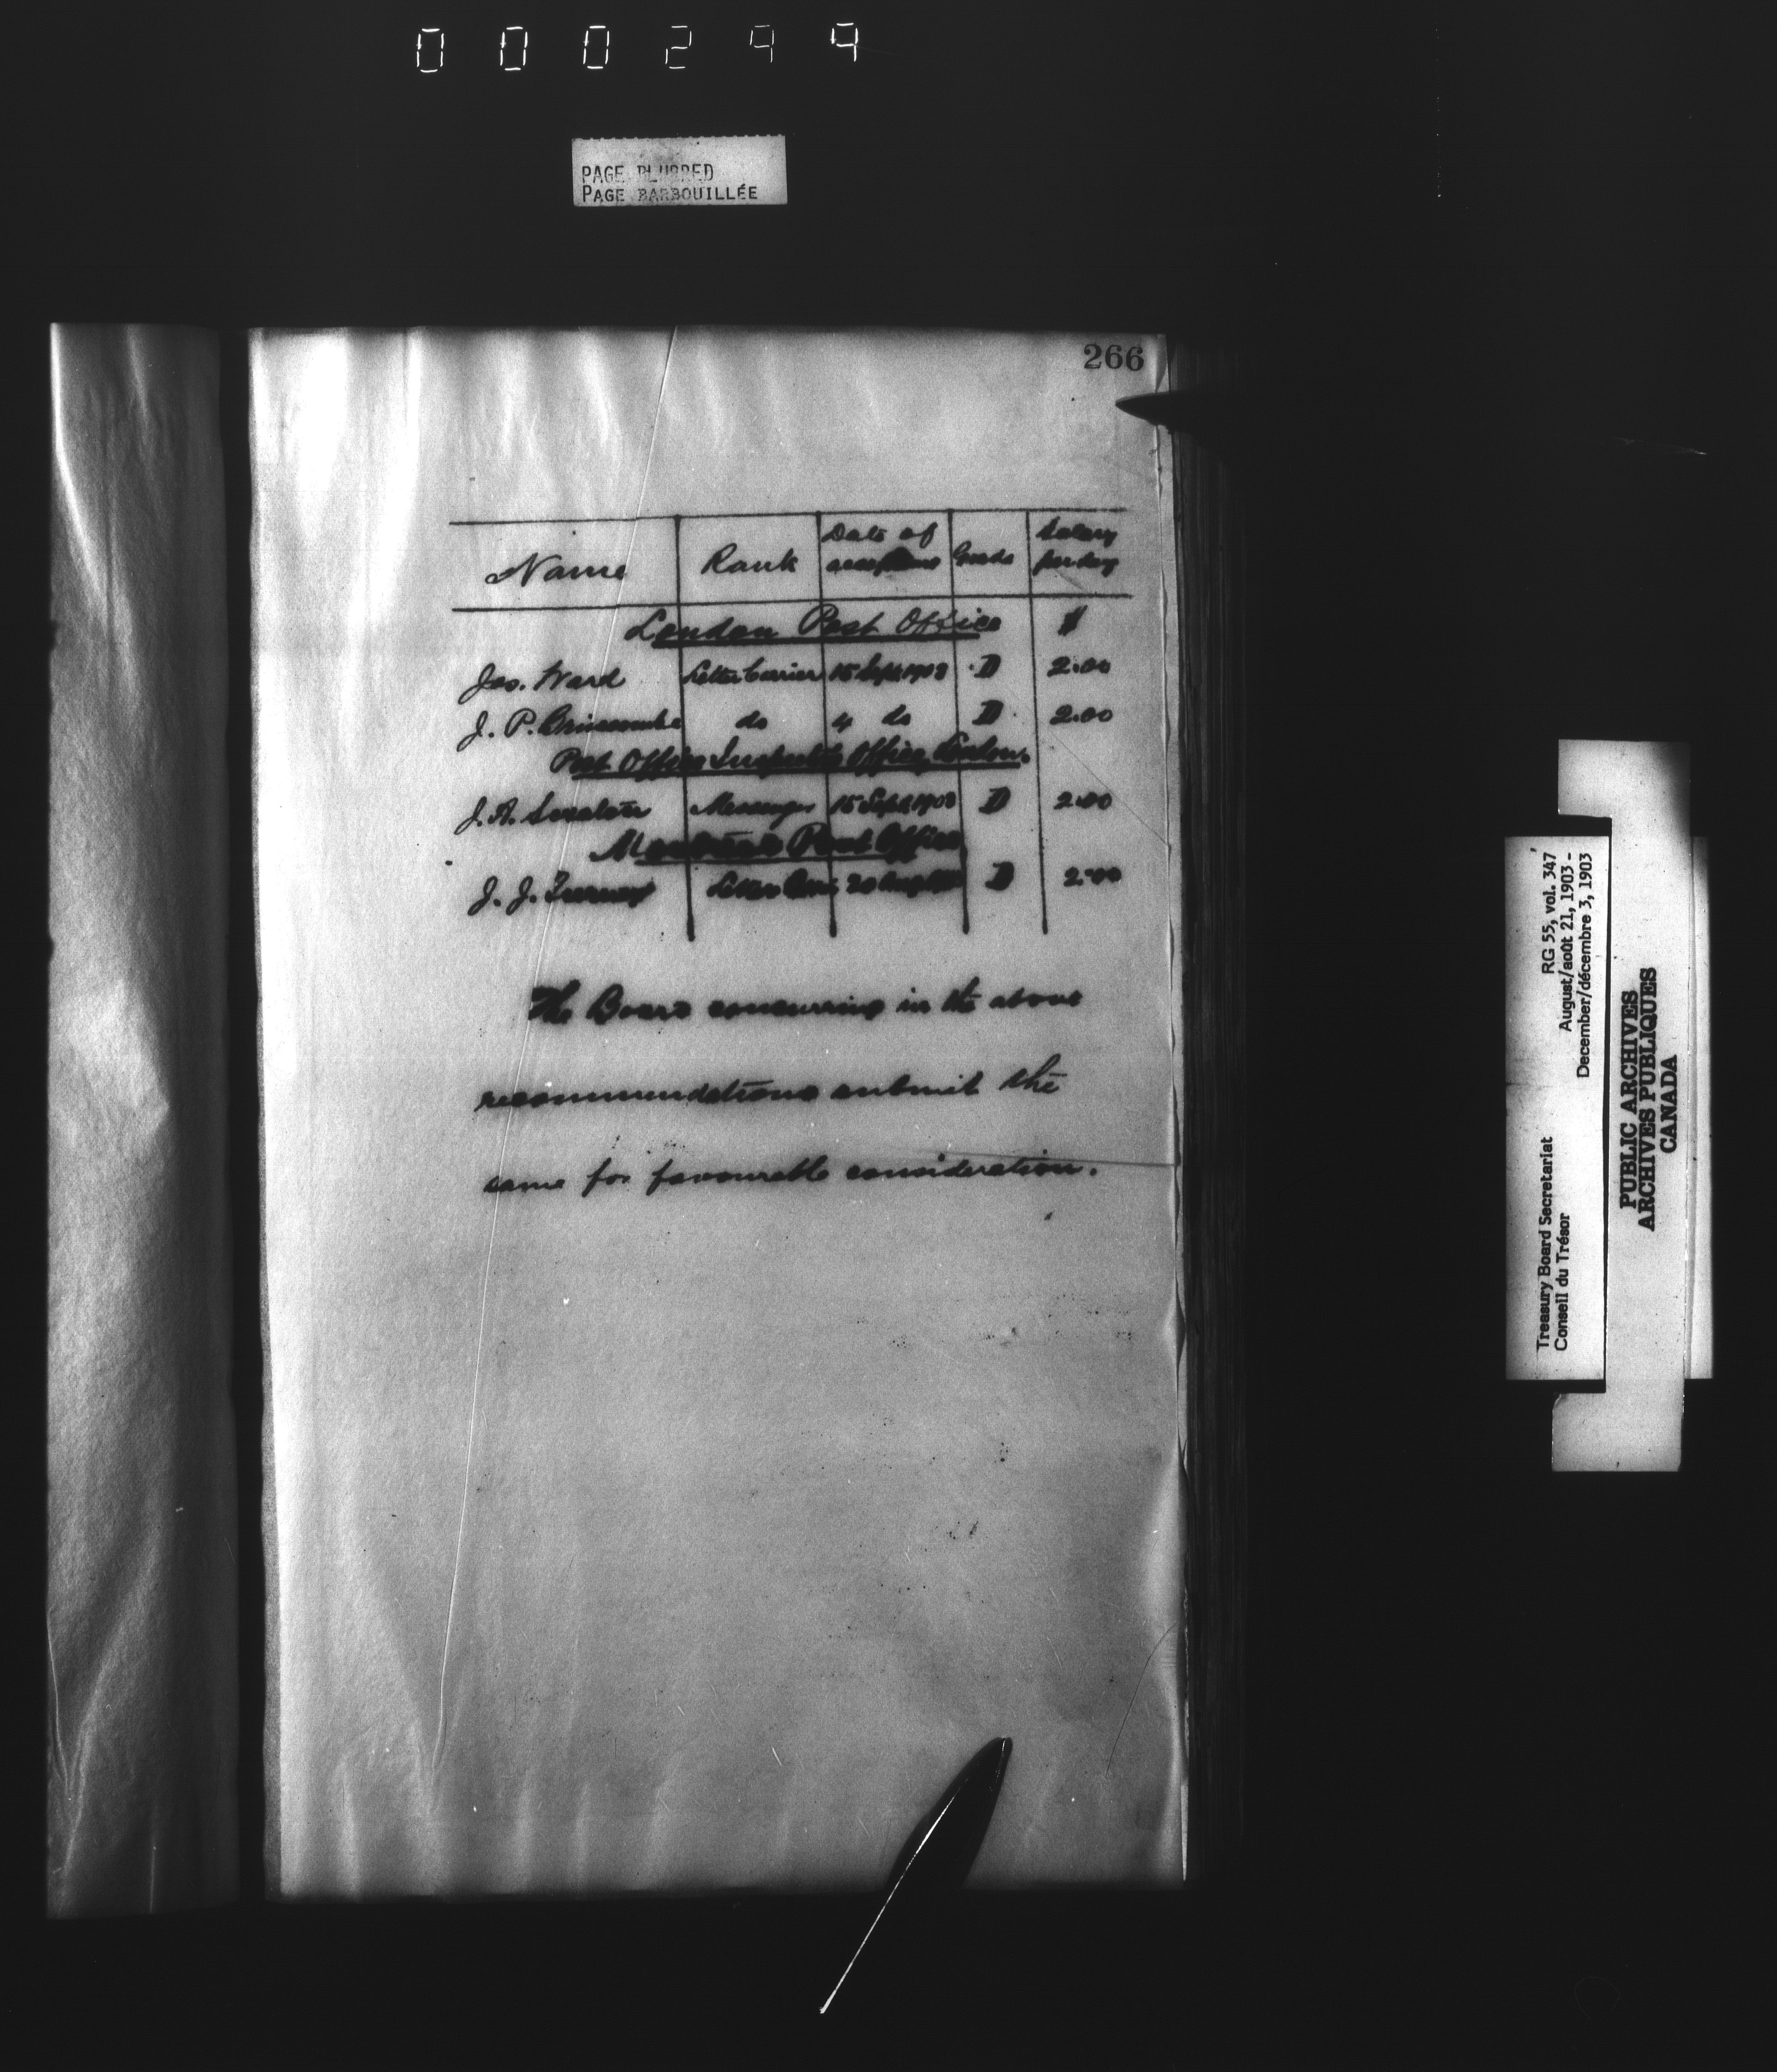 000299
PAGE BLURRED
PAGE BARBOUILLÉE
266
Name Rank Date of Grade Salary per day
London Post Office $
Jas. Ward Letter Carrier 15 Sept 1903 D 2.00
J. P. do 4 do D 2.00
Post Office Inspector's Office, London.
J. A. Messenger 15 Sept 1903 D 2.00
Montreal Post Office
J. J. Letter 20 D 2.00
The Board concurring in the above
recommendations submit the
same for favourable consideration.
Treasury Board Secretariat RG 55, vol. 347
Conseil du Trésor August/août 21, 1903 -
December/décembre 3, 1903
PUBLIC ARCHIVES
ARCHIVES PUBLIQUES
CANADA